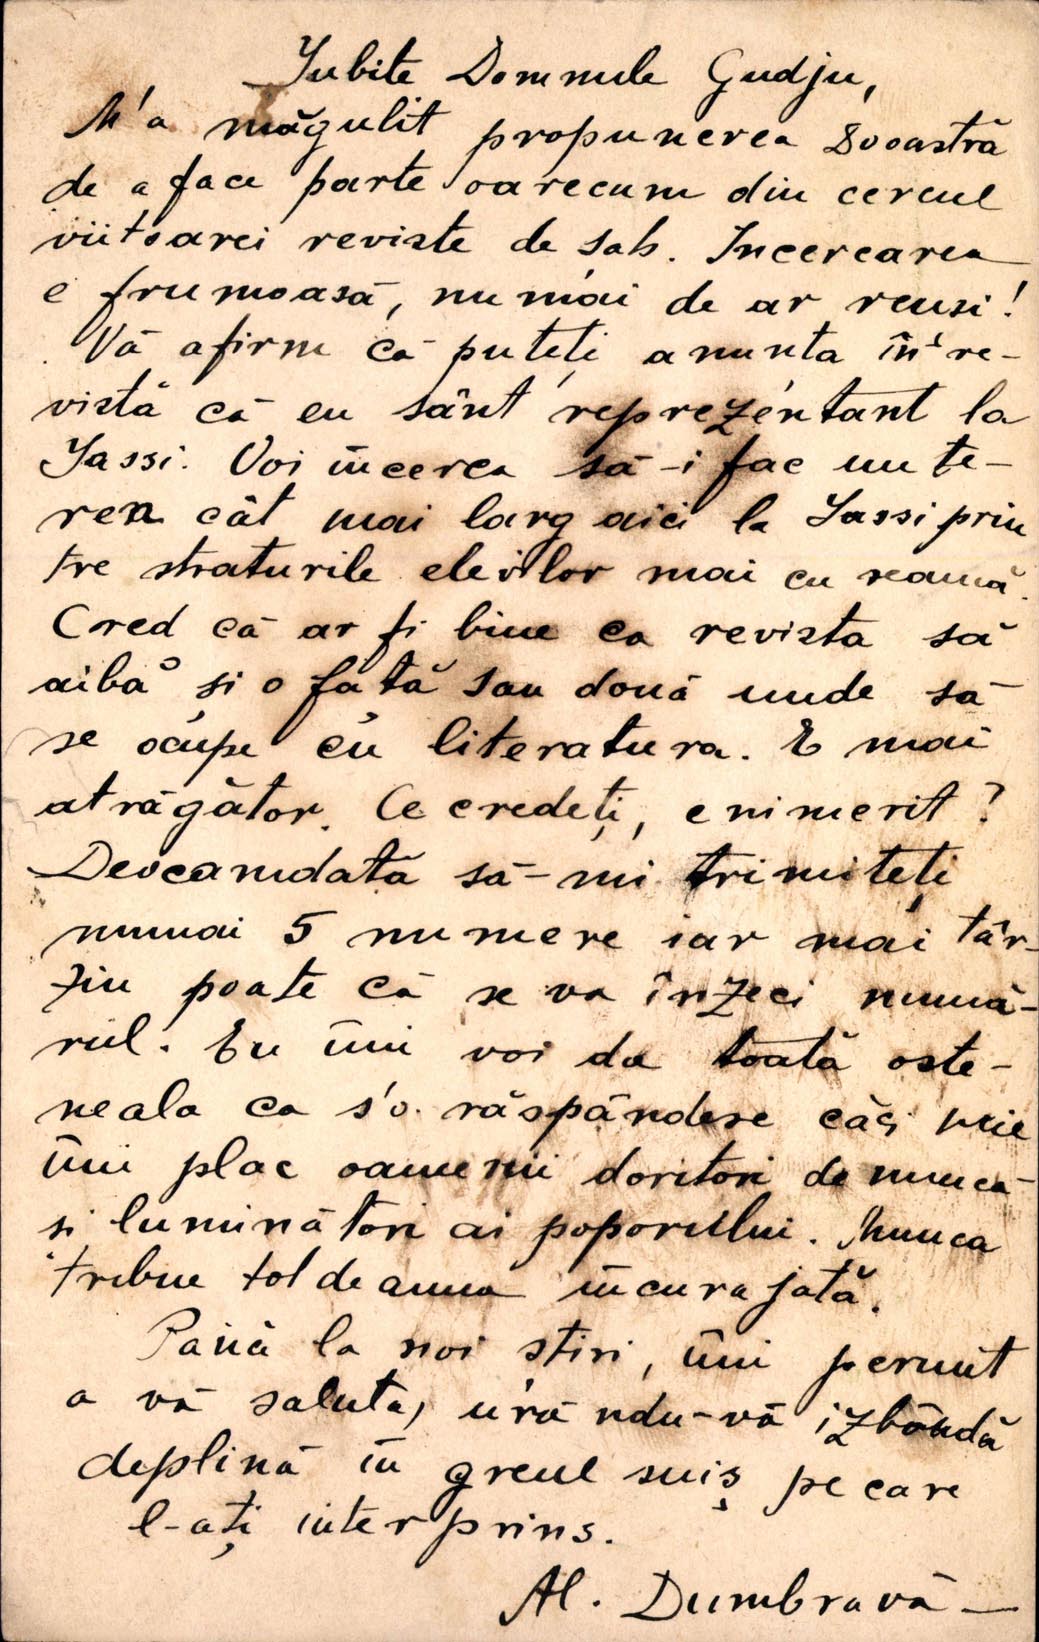 Iubite Domnule Gudju,
M'a măgulit propunerea Dvoastră
de a face parte oarecum din cercul
viitoarei reviste de șah. Incercarea
e frumoasă, numai de ar reuși!
Vă afirm că puteți anunta în re-
vistă că eu sânt reprezentant la
Iassi. Voi încerca să-i fac un te-
ren cât mai larg aici la Iassi prin
tre straturile elevilor mai cu seamă.
Cred că ar fi bine ca revista să
aibă și o față sau două unde să
se ocupe cu literatura. E mai
atrăgător. Ce credeți, e nimerit?
Deocamdată să-mi trimiteți
numai 5 numere iar mai târ-
ziu poate că se va înzeci numă-
rul. Eu îmi voi da toată oste-
neala ca s'o răspândesc căci mie
îmi plac oamenii doritori de muncă
și luminători ai poporului. Munca
trebue totdeauna încurajată.
Până la noi știri, îmi permit
a vă saluta, urându-vă izbândă
deplină în greul suiș pe care
l-ați interprins.
Al. Dumbravă